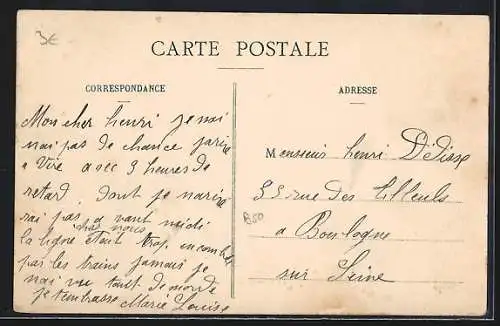 3€
CARTE POSTALE
CORRESPONDANCE
ADRESSE
Mon cher henri je nai
nai pas de chance jarive
a Vire avec 3 heures de
retard. Dont je narive
rai pas a vant midi
chez nous
la ligne etait trop encombré
par les trains jamais je
nai vu tout de monde
je tembrasse Marie Louise
Monsieur henri
55 rue des tilleuls
a Boulogne
sur Seine
B50